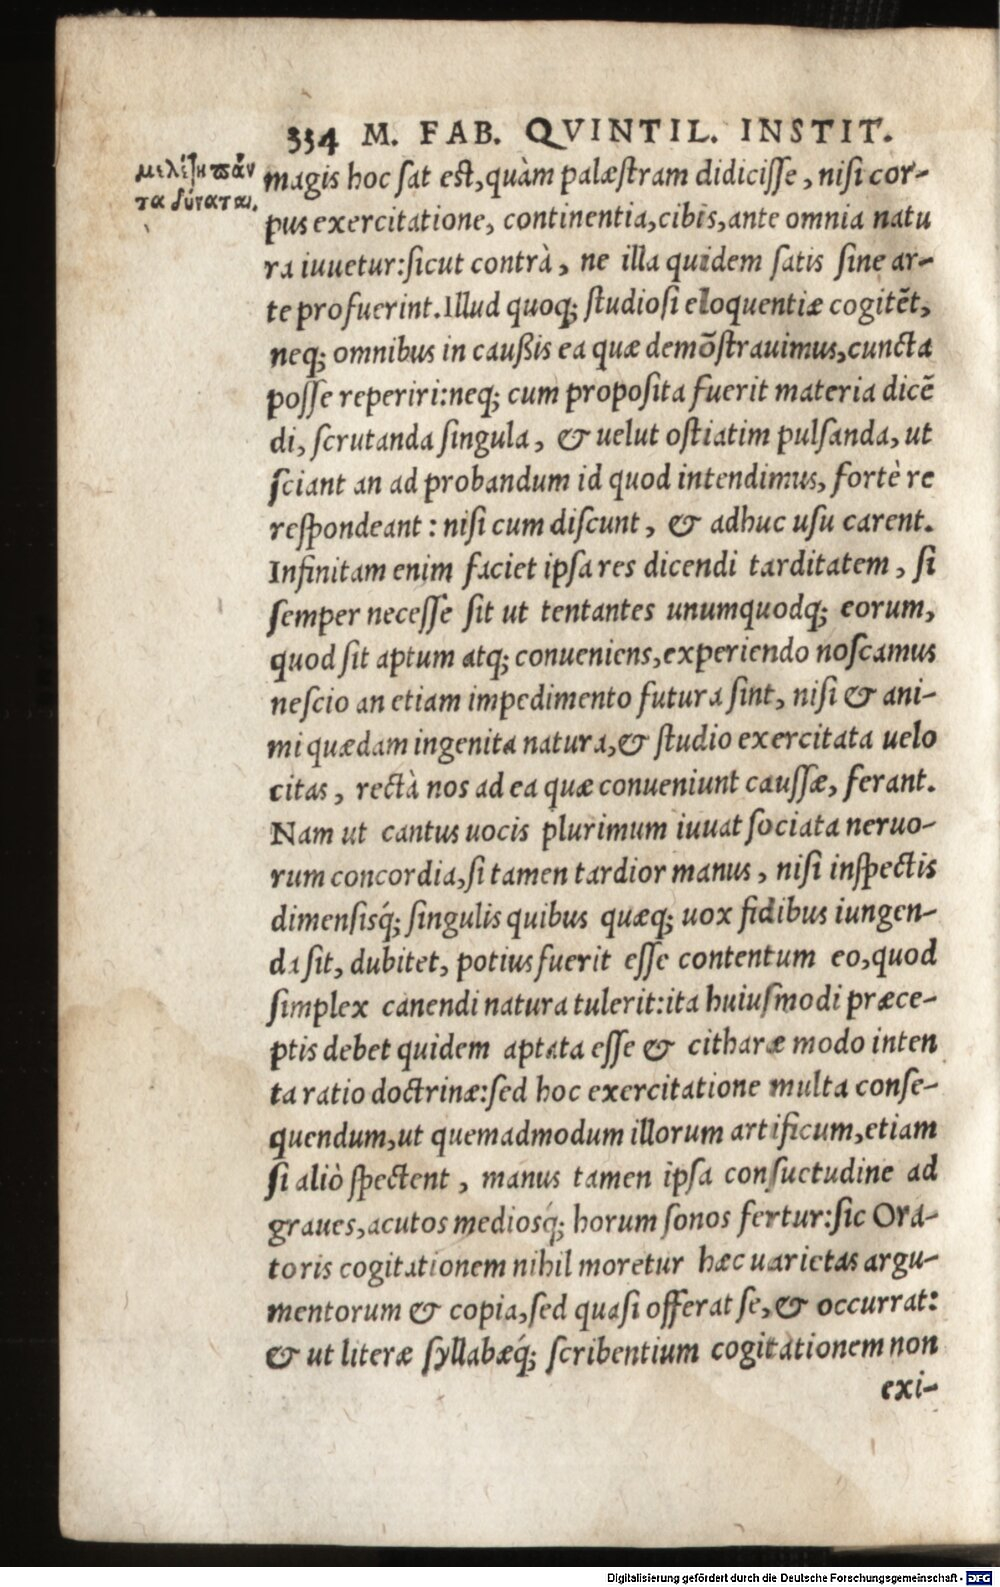 334 M. FAB. QVINTIL. INSTIT.
μελέτη πάν
τα δύναται.
magis hoc sat est, quàm palæstram didicisse, nisi cor-
pus exercitatione, continentia, cibis, ante omnia natu
ra iuuetur: sicut contrà, ne illa quidem satis sine ar-
te profuerint. Illud quoq; studiosi eloquentiæ cogitēt,
neq; omnibus in caußis ea quæ demōstrauimus, cuncta
posse reperiri: neq; cum proposita fuerit materia dicē
di, scrutanda singula, & uelut ostiatim pulsanda, ut
sciant an ad probandum id quod intendimus, fortè re
respondeant: nisi cum discunt, & adhuc usu carent.
Infinitam enim faciet ipsa res dicendi tarditatem, si
semper necesse sit ut tentantes unumquodq; eorum,
quod sit aptum atq; conueniens, experiendo noscamus
nescio an etiam impedimento futura sint, nisi & ani-
mi quædam ingenita natura, & studio exercitata uelo
citas, rectà nos ad ea quæ conueniunt caussæ, ferant.
Nam ut cantus uocis plurimum iuuat sociata neruo-
rum concordia, si tamen tardior manus, nisi inspectis
dimensisq́; singulis quibus quæq; uox fidibus iungen-
da sit, dubitet, potius fuerit esse contentum eo, quod
simplex canendi natura tulerit: ita huiusmodi præce-
ptis debet quidem aptata esse & citharæ modo inten
ta ratio doctrinæ: sed hoc exercitatione multa conse-
quendum, ut quemadmodum illorum artificum, etiam
si aliò spectent, manus tamen ipsa consuetudine ad
graues, acutos mediosq́; horum sonos fertur: sic Ora-
toris cogitationem nihil moretur hæc uarietas argu-
mentorum & copia, sed quasi offerat se, & occurrat:
& ut literæ syllabæq́; scribentium cogitationem non
exi-
Digitalisierung gefördert durch die Deutsche Forschungsgemeinschaft - DFG